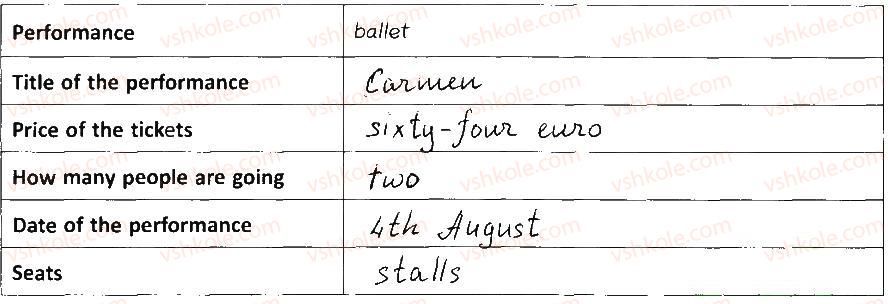 Performance ballet
Title of the performance Carmen
Price of the tickets sixty-four euro
How many people are going two
Date of the performance 4th August
Seats stalls
vshkole.com